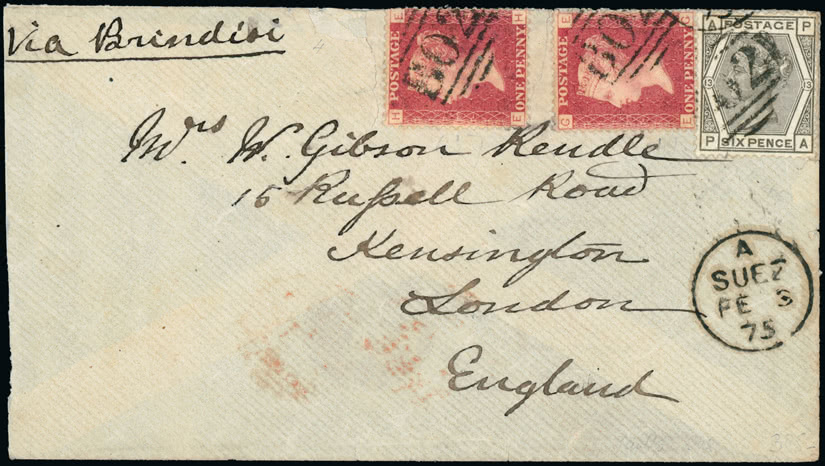 Via Brindisi
E H
POSTAGE
B02
ONE PENNY
H E
E G
POSTAGE
B0
ONE PENNY
G E
A POSTAGE P
13 13
02
P SIX PENCE A
Mrs W. Gibson Rendle
15 Russell Road
Kensington
London
England
A
SUEZ
FE
75